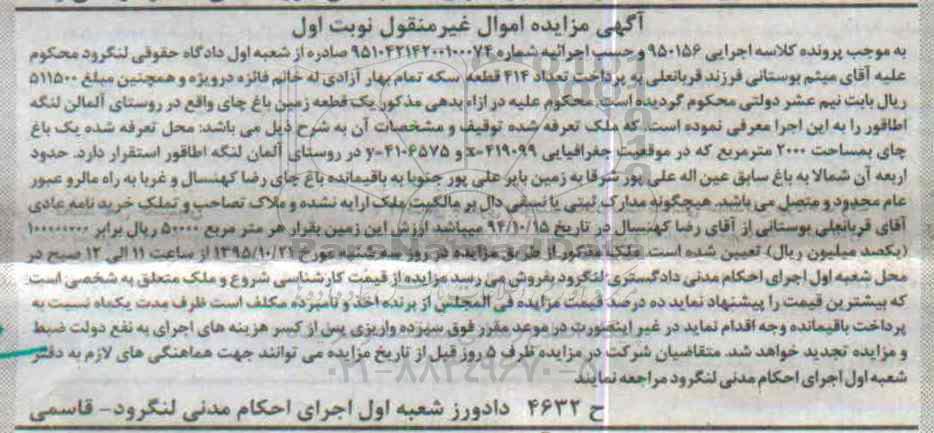 آگهی مزایده اموال غیرمنقول نوبت اول
به موجب پرونده کلاسه اجرایی ۹۵۰۱۵۶ و حسب اجرائیه شماره ۹۵۱۰۴۲۱۴۲۰۰۱۰۰۰۷۴ صادره از شعبه اول دادگاه حقوقی لنگرود محکوم
علیه آقای میثم بوستانی فرزند قربانعلی به پرداخت تعداد ۴۱۴ قطعه سکه تمام بهار آزادی له خانم فائزه درویزه و همچنین مبلغ ۵۱۱۵۰۰
ریال بابت نیم عشر دولتی محکوم گردیده است. محکوم علیه در ازاء بدهی مذکور یک قطعه زمین باغ چای واقع در روستای آلمالن لنگه
اطاقور را به این اجرا معرفی نموده است. که ملک تعرفه شده توقیف و مشخصات آن به شرح ذیل می باشد: محل تعرفه شده یک باغ
چای بمساحت ۲۰۰۰ مترمربع که در موقعیت جغرافیایی x=۴۱۹۰۹۹ و y=۴۱۰۶۵۷۵ در روستای آلمان لنگه اطاقور استقرار دارد. حدود
اربعه آن شمالا به باغ سابق عین اله علی پور شرقا به زمین بابر علی پور جنوبا به باقیمانده باغ چای رضا کهنسال و غربا به راه مالرو عبور
عام محدود و متصل می باشد. هیچگونه مدارک ثبتی یا نسقی دال بر مالکیت ملک ارایه نشده و ملاک تصاحب و تملک خرید نامه عادی
آقای قربانعلی بوستانی از آقای رضا کهنسال در تاریخ ۹۴/۱۰/۱۵ میباشد ارزش این زمین بقرار هر متر مربع ۵۰۰۰۰ ریال برابر ۱۰۰۰۰۰۰۰۰
(یکصد میلیون ریال) تعیین شده است. ملک مذکور از طریق مزایده در روز سه شنبه مورخ ۱۳۹۵/۱۰/۲۱ از ساعت ۱۱ الی ۱۲ صبح در
محل شعبه اول اجرای احکام مدنی دادگستری لنگرود بفروش می رسد مزایده از قیمت کارشناسی شروع و ملک متعلق به شخصی است
که بیشترین قیمت را پیشنهاد نماید ده درصد قیمت مزایده فی المجلس از برنده اخذ و نامبرده مکلف است ظرف مدت یکماه نسبت به
پرداخت باقیمانده وجه اقدام نماید در غیر اینصورت در موعد مقرر فوق سپرده واریزی پس از کسر هزینه های اجرای به نفع دولت ضبط
و مزایده تجدید خواهد شد. متقاضیان شرکت در مزایده ظرف ۵ روز قبل از تاریخ مزایده می توانند جهت هماهنگی های لازم به دفتر
شعبه اول اجرای احکام مدنی لنگرود مراجعه نمایند.
ح ۴۶۳۲ دادورز شعبه اول اجرای احکام مدنی لنگرود- قاسمی
ParsNamadData
۰۲۱-۸۸۳۴۹۶۷۰-۵